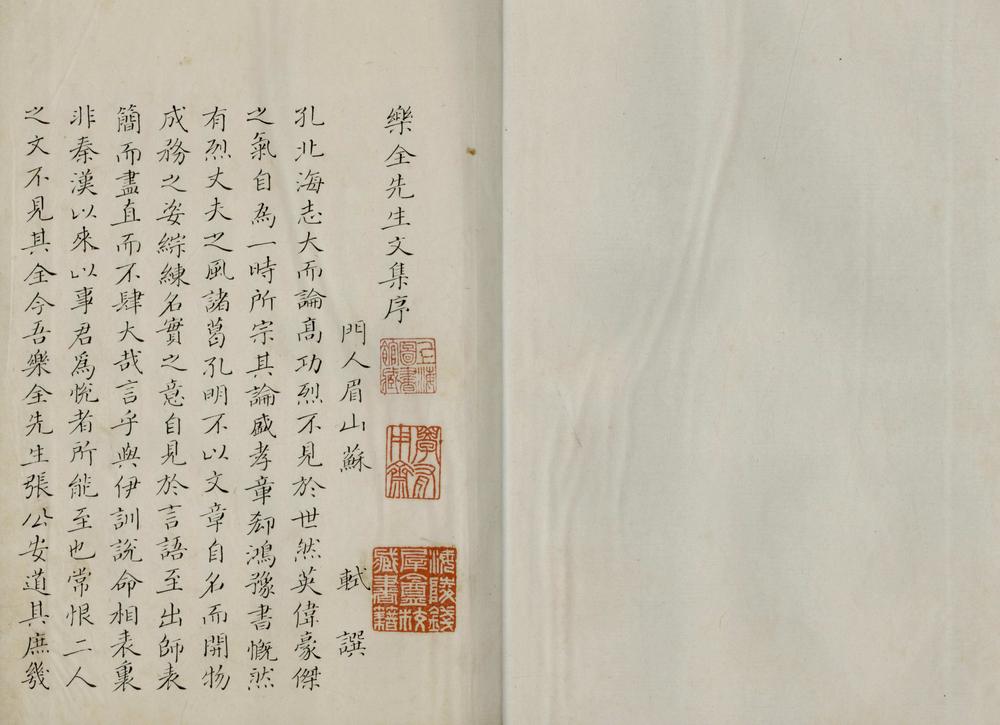 樂全先生文集序
門人眉山蘇 軾 譔
孔北海志大而論高功烈不見於世然英偉豪傑
之氣自為一時所宗其論盛孝章郄鴻豫書慨然
有烈丈夫之風諸葛孔明不以文章自名而開物
成務之姿綜練名實之意自見於言語至出師表
簡而盡直而不肆大哉言乎與伊訓說命相表裏
非秦漢以來以事君為悅者所能至也常恨二人
之文不見其全今吾樂全先生張公安道其庶幾
上海
圖書
館藏
學有
用齋
海陵錢
犀盦校
藏書籍